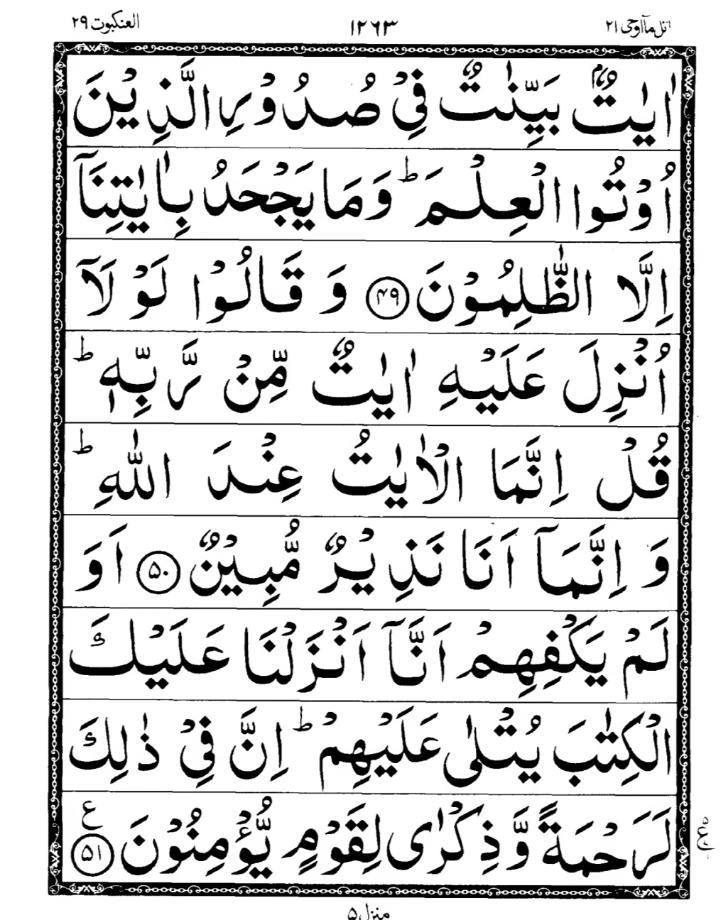 اتل مآاوحی ۲۱
۱۲۶۳
العنکبوت ۲۹
اٰیٰتٌۢ بَیِّنٰتٌ فِیْ صُدُوْرِ الَّذِیْنَ
اُوْتُوا الْعِلْمَ ؕ وَمَا یَجْحَدُ بِاٰیٰتِنَاۤ
اِلَّا الظّٰلِمُوْنَ ۴۹ وَ قَالُوْا لَوْ لَاۤ
اُنْزِلَ عَلَیْهِ اٰیٰتٌ مِّنْ رَّبِّهٖ ؕ
قُلْ اِنَّمَا الْاٰیٰتُ عِنْدَ اللّٰهِ ؕ
وَ اِنَّمَاۤ اَنَا نَذِیْرٌ مُّبِیْنٌ ۵۰ اَوَ
لَمْ یَكْفِهِمْ اَنَّاۤ اَنْزَلْنَا عَلَیْكَ
الْكِتٰبَ یُتْلٰی عَلَیْهِمْ ؕ اِنَّ فِیْ ذٰلِكَ
لَرَحْمَةً وَّ ذِكْرٰی لِقَوْمٍ یُّؤْمِنُوْنَ ۵۱ ع
منزل ۵